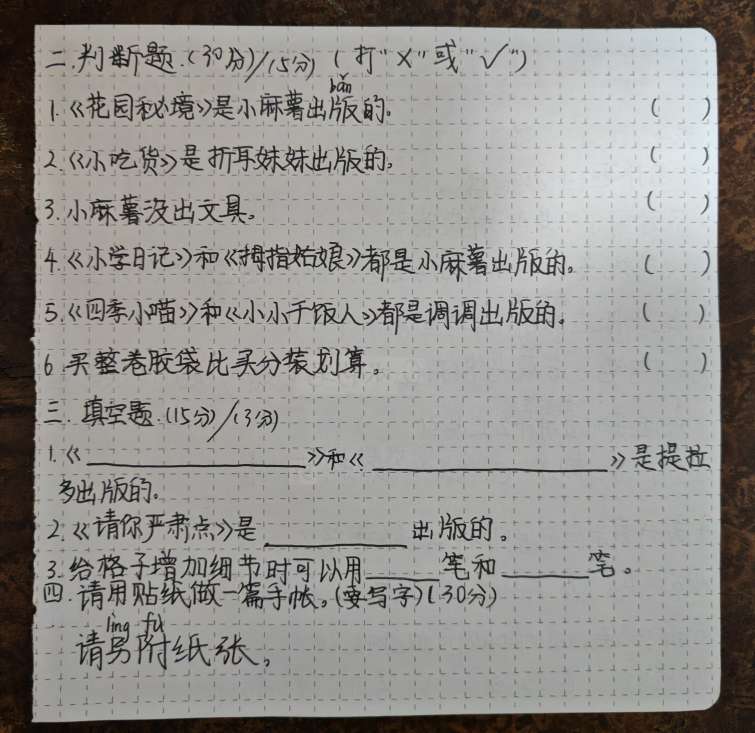 二.判断题.(30分)/(5分)(打"×"或"√")
bǎn
1.《花园秘境》是小麻薯出版的。 ( )
2.《小吃货》是折耳妹妹出版的。 ( )
3.小麻薯没出文具。 ( )
4.《小学日记》和《拇指姑娘》都是小麻薯出版的。 ( )
5.《四季小喵》和《小小干饭人》都是调调出版的。 ( )
6.买整卷胶袋比买分装划算。 ( )
三.填空题.(15分)/(3分)
1.《 》和《 》是提拉
多出版的。
2.《请你严肃点》是 出版的。
3.给格子增加细节时可以用 笔和 笔。
四.请用贴纸做一篇手帐。(要写字)(30分)
lìng fù
请另附纸张。